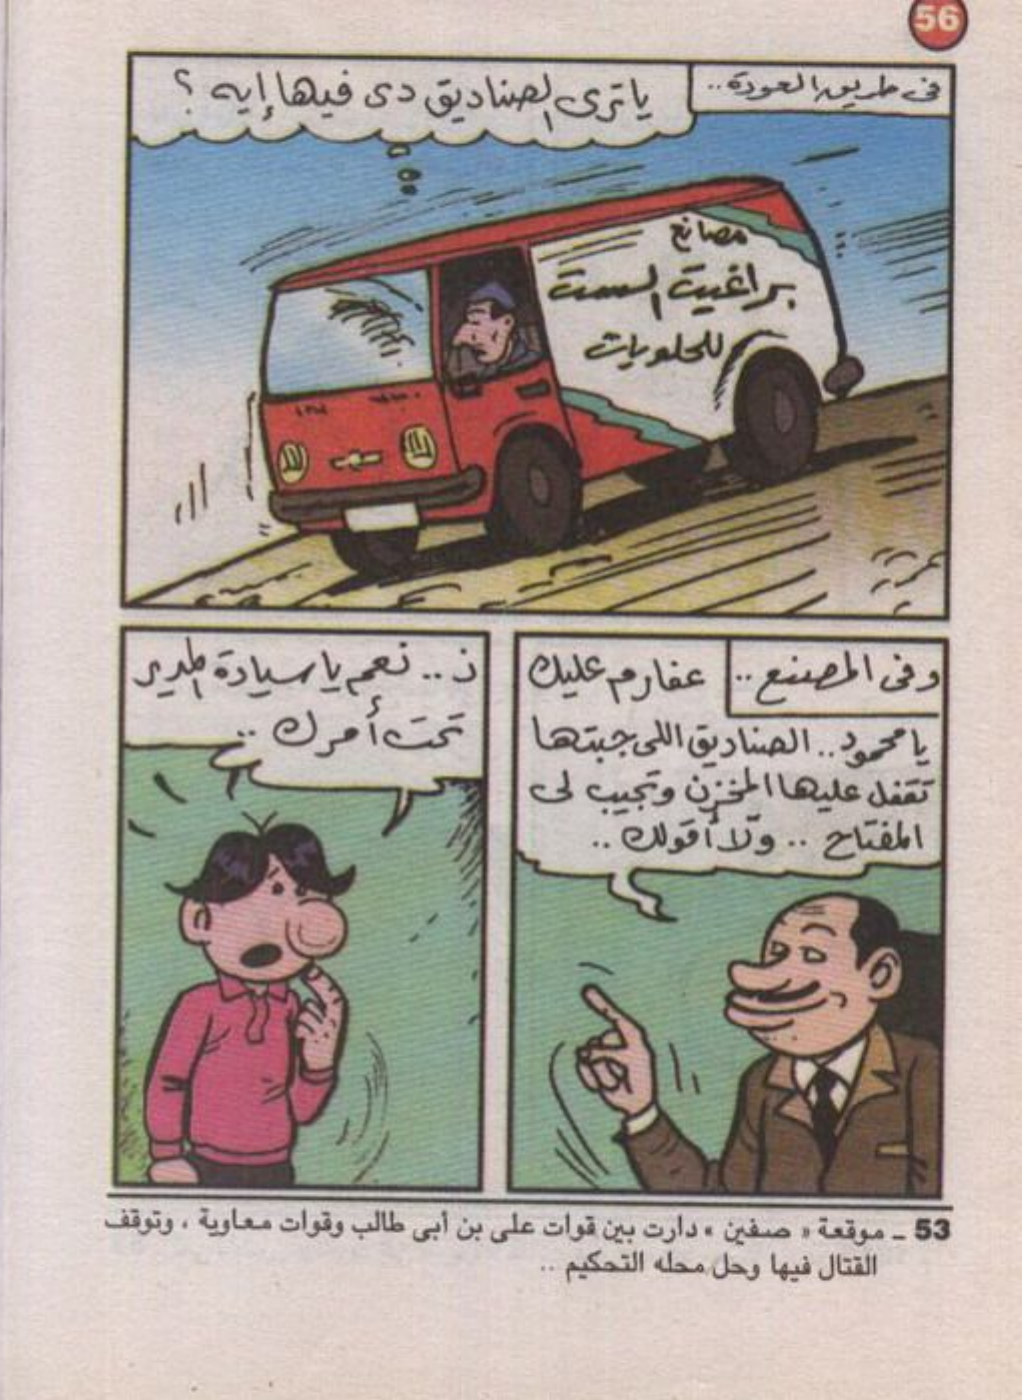 56
فى طريق العودة..
ياترى الصناديق دى فيها إيه ؟
مصانع
براغيت الست
للحلويات
وفى المصنع ..
عفارم عليك
يا محمود.. الصناديق اللى جبتها
تقفل عليها المخزن وتجيب لى
المفتاح .. ولا أقولك ..
ن .. نعم يا سيادة المدير
تحت أمرك ..
53 ـ موقعة « صفين » دارت بين قوات على بن أبى طالب وقوات معاوية ، وتوقف
القتال فيها وحل محله التحكيم ..